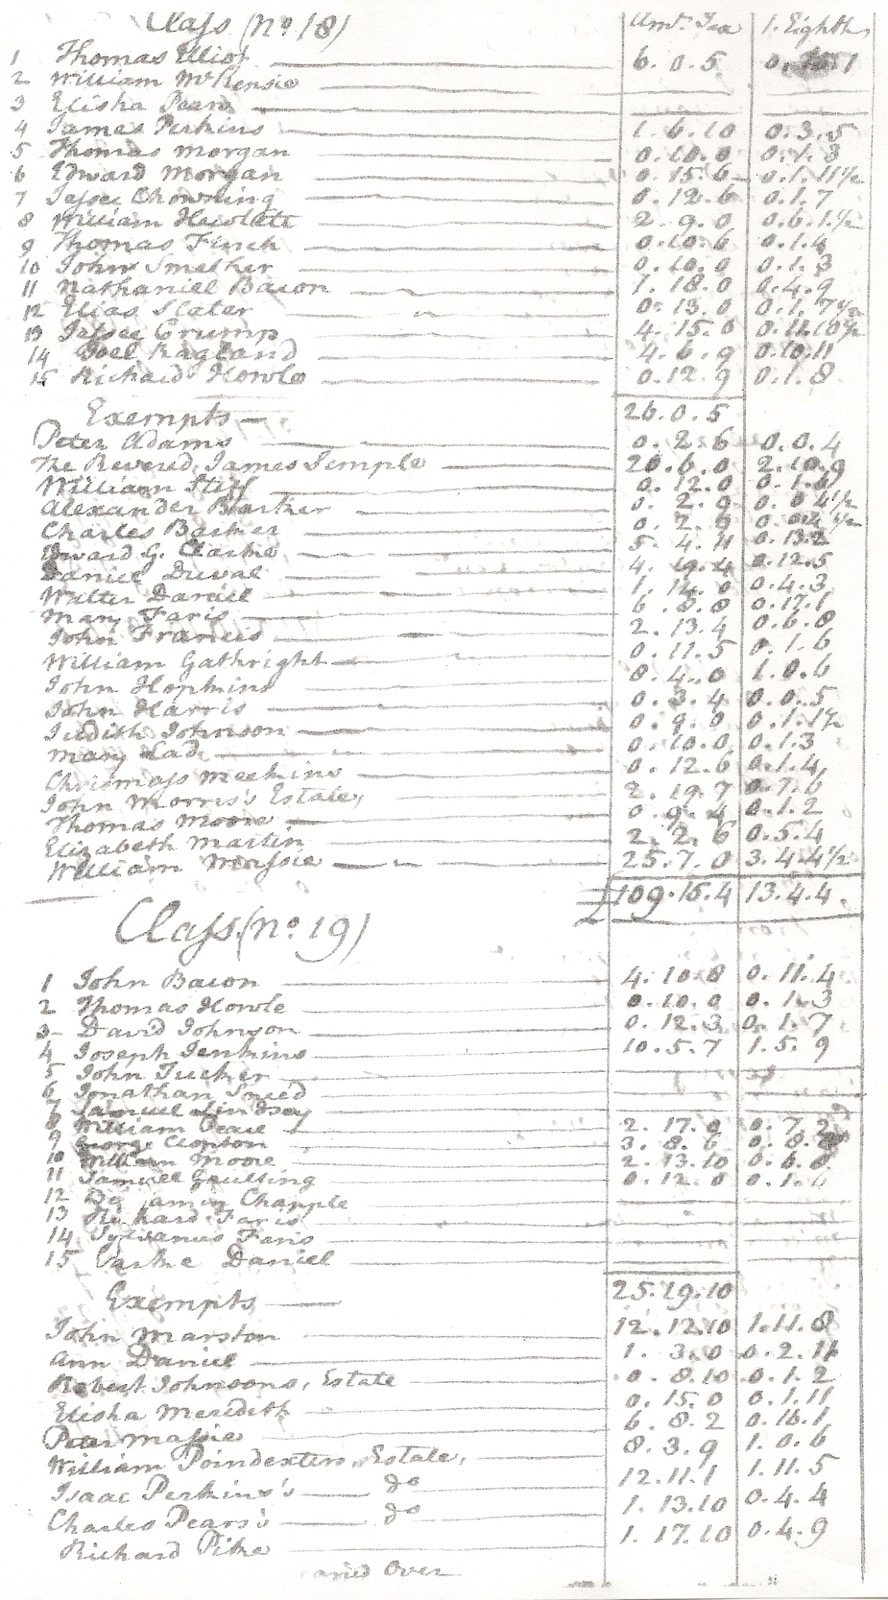 Class (No. 18) Amt. Tax 1. Eighth
1 Thomas Elliot 6. 0. 5 0. 1
2 William McKensie
3 Elisha Pears
4 James Perkins 1. 6. 10 0. 3. 5
5 Thomas Morgan 0. 10. 0 0. 1. 3
6 Edward Morgan 0. 15. 6 0. 1. 11½
7 Jessee Chowning 0. 12. 6 0. 1. 7
8 William Hewlett 2. 9. 0 0. 6. 1½
9 Thomas Finch 0. 10. 6 0. 1. 4
10 John Smether 0. 10. 0 0. 1. 3
11 Nathaniel Bacon 1. 18. 0 0. 4. 9
12 Elias Slater 0. 13. 0 0. 1. 7½
13 Jessee Crump 4. 15. 0 0. 11. 10½
14 Joel Ragland 4. 6. 9 0. 10. 11
15 Richard Howle 0. 12. 9 0. 1. 8
Exempts — 26. 0. 5
Peter Adams 0. 2. 6 0. 0. 4
The Revered, James Semple 20. 6. 0 2. 10. 9
William Stiff 0. 12. 0 0. 1. 6
Alexander Barker 0. 2. 9 0. 0. 4½
Charles Barker 0. 2. 9 0. 0. 4½
Edward G. Clarke 5. 4. 11 0. 13. 2
Daniel Duval 4. 19. 4 0. 12. 5
Walter Daniel 1. 14. 0 0. 4. 3
Mary Faris 6. 8. 8 0. 17. 1
John Francis 2. 13. 4 0. 6. 8
William Gathright 0. 11. 5 0. 1. 6
John Hopkins 8. 4. 0 1. 0. 6
John Harris 0. 3. 4 0. 0. 5
Judith Johnson 0. 9. 0 0. 1. 1½
Mary Lad 0. 10. 0 0. 1. 3
Chrismass Meekins 0. 12. 6 0. 1. 4
John Morris's Estate, 2. 19. 7 0. 7. 6
Thomas Moore 0. 9. 4 0. 1. 2
Elizabeth Martin 2. 2. 6 0. 5. 4
William Massie 25. 7. 0 3. 4. 4½
£109. 15. 4 13. 4. 4.
Class (No. 19)
1 John Bacon 4. 10. 8 0. 11. 4
2 Thomas Howle 0. 10. 0 0. 1. 3
3 David Johnson 0. 12. 3 0. 1. 7
4 Joseph Jenkins 10. 5. 7 1. 5. 9
5 John Tucker
6 Jonathan Sneed
7 Samuel Lindsey
8 William Peace 2. 17. 0 0. 7. 2
9 George Clopton 3. 8. 6 0. 8.
10 William Moore 2. 13. 10 0. 6. 8
11 Samuell Gaulding 0. 12. 0 0. 1. 6
12 Benjamin Chapple
13 Richard Faris
14 Sylvanus Faris
15 Parke Daniel
Exempts — 25. 19. 10
John Marston 12. 12. 10 1. 11. 8
Ann Daniel 1. 3. 0 0. 2. 11
Robert Johnsons, Estate 0. 8. 10 0. 1. 2
Elisha Meredith 0. 15. 0 0. 1. 11
Peter Massie 6. 8. 2 0. 16. 1
William Poindexters, Estate, 8. 3. 9 1. 0. 6
Isaac Perkins's — do 12. 11. 1 1. 11. 5
Charles Pears's — do 1. 13. 10 0. 4. 4
Richard Pike 1. 17. 10 0. 4. 9
Over